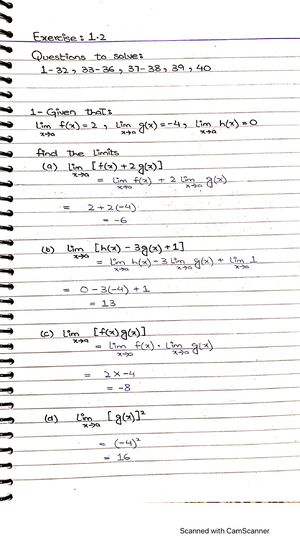 Exercise: 1.2
Questions to solve:
1-32, 33-36, 37-38, 39, 40
1- Given that:
lim x→a f(x)=2, lim x→a g(x)=-4, lim x→a h(x)=0
find the limits
(a) lim x→a [f(x)+2g(x)]
= lim x→a f(x) + 2 lim x→a g(x)
= 2+2(-4)
= -6
(b) lim x→a [h(x) - 3g(x)+1]
= lim x→a h(x) - 3 lim x→a g(x) + lim x→a 1
= 0-3(-4) + 1
= 13
(c) lim x→a [f(x)g(x)]
= lim x→a f(x) · lim x→a g(x)
= 2 x -4
= -8
(d) lim x→a [g(x)]²
= (-4)²
= 16
Scanned with CamScanner